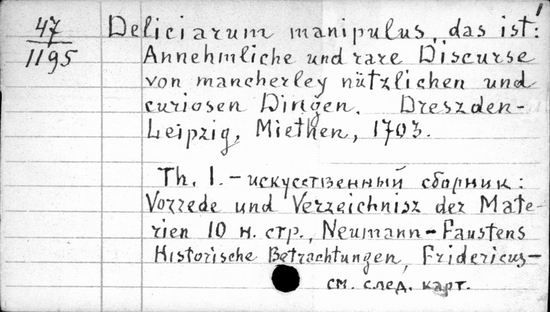 1
47
1195
Deliciarum manipulus, das ist:
Annehmliche und rare Discurse
von mancherley nützlichen und
curiosen Dingen. Dreszden-
Leipzig, Miethen, 1703.
Th. 1. - искусственный сборник:
Vorrede und Verzeichnisz der Mate-
rien 10 н. стр., Neumann-Faustens
Historische Betrachtungen, Fridericus-
см. след. карт.